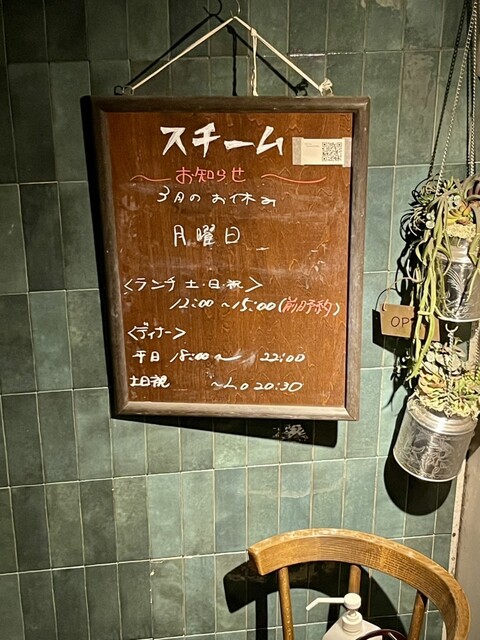 スチーム
お知らせ
3月のお休み
月曜日
<ランチ 土・日・祝>
12:00~15:00(前日予約)
<ディナー>
平日 18:00~22:00
土日祝 ~L.o 20:30
OP